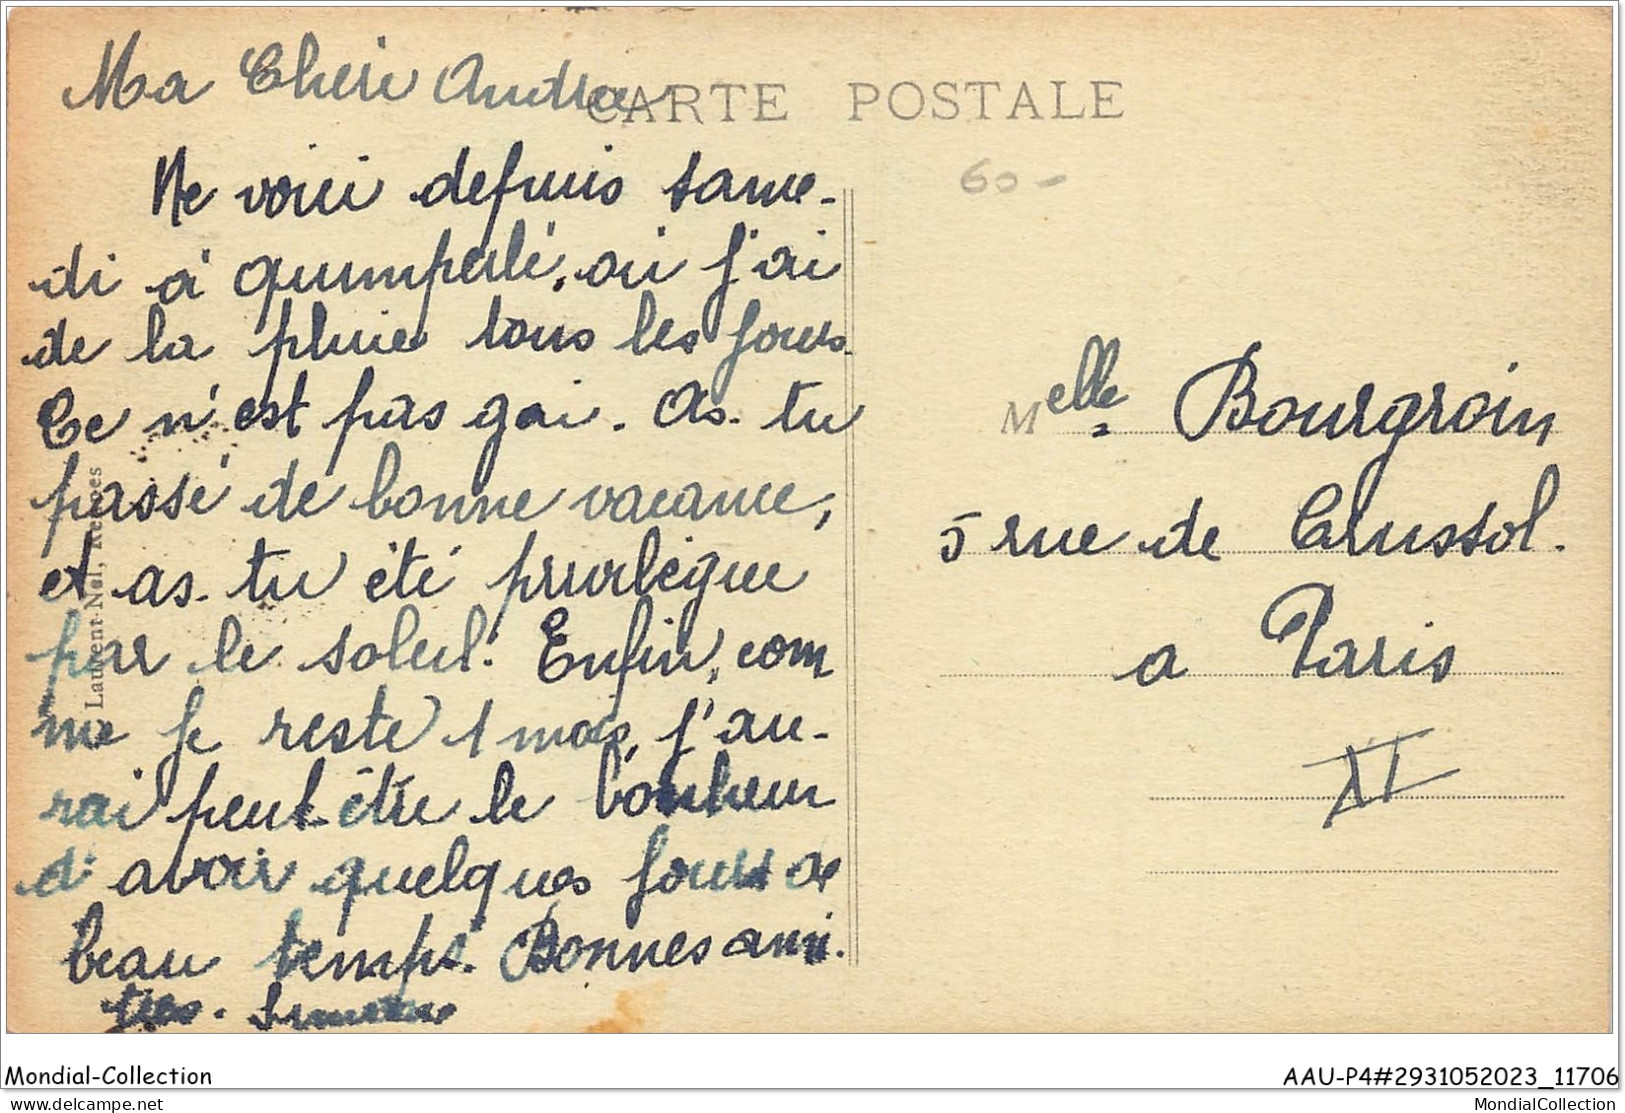 Ma Cheri Andrée
CARTE POSTALE
60-
Me voici depuis same-
di à Quimperlé, où j'ai
de la pluie tous les jours.
Ce n'est pas gai. As-tu
passé de bonne vacance,
et as-tu été privilègue
par le soleil. Enfin, com
me je reste 1 mois, j'au-
rai peut-être le bonheur
d'avoir quelques jours de
beau temps. Bonnes ami-
ties. Simone
Laurent-Nel, Rennes
Melle Bourgroin
5 rue de Crussol.
a Paris
XI
Mondial-Collection
AAU-P4#2931052023_11706
https://www.delcampe.net
MondialCollection